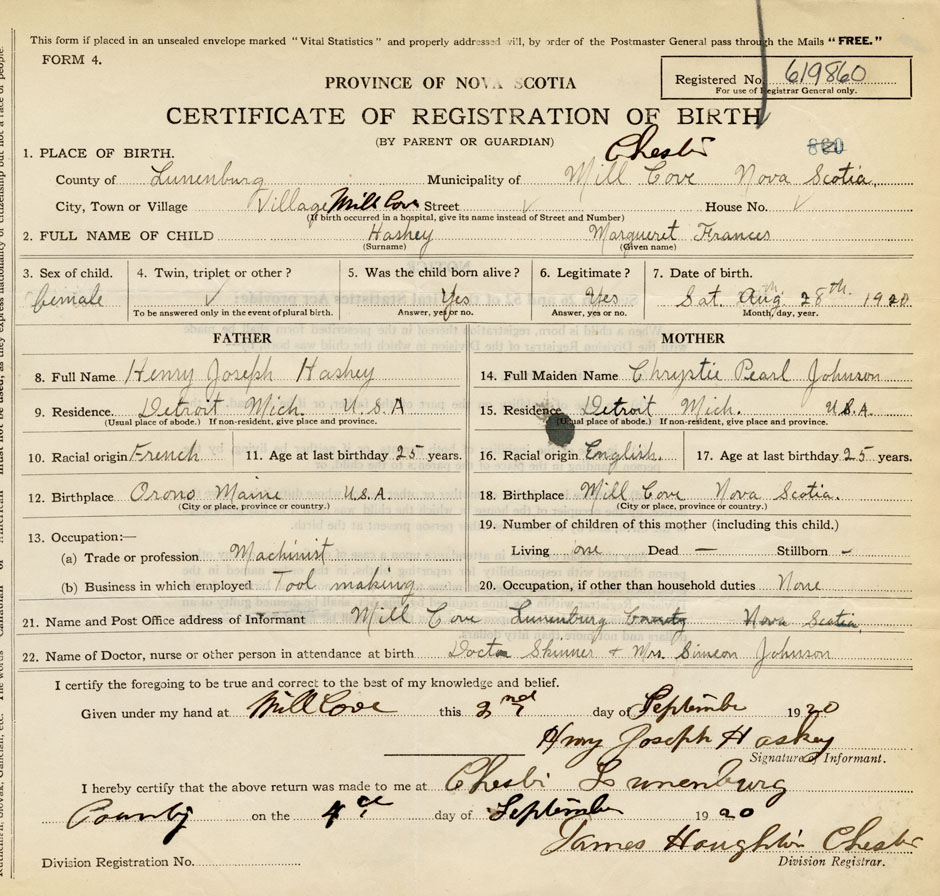 This form if placed in an unsealed envelope marked "Vital Statistics" and properly addressed will, by order of the Postmaster General pass through the Mails "FREE."
FORM 4.
PROVINCE OF NOVA SCOTIA
Registered No. 619860
For use of Registrar General only.
CERTIFICATE OF REGISTRATION OF BIRTH
(BY PARENT OR GUARDIAN)
Chester
1. PLACE OF BIRTH.
County of Lunenburg Municipality of Mill Cove Nova Scotia
City, Town or Village Village Mill Cove Street House No.
(If birth occurred in a hospital, give its name instead of Street and Number)
2. FULL NAME OF CHILD Haskey Margueret Frances
(Surname) (Given name)
3. Sex of child. 4. Twin, triplet or other? 5. Was the child born alive? 6. Legitimate? 7. Date of birth.
female Yes Yes Sat. Aug. 28th. 1920
To be answered only in the event of plural birth. Answer, yes or no. Answer, yes or no. Month, day, year.
FATHER MOTHER
8. Full Name Henry Joseph Haskey 14. Full Maiden Name Chrystie Pearl Johnson
9. Residence. Detroit Mich. U.S.A 15. Residence Detroit Mich. U.S.A.
(Usual place of abode.) If non-resident, give place and province. (Usual place of abode.) If non-resident, give place and province.
10. Racial origin French 11. Age at last birthday 25 years. 16. Racial origin English. 17. Age at last birthday 25 years.
12. Birthplace Orono Maine U.S.A. 18. Birthplace Mill Cove Nova Scotia.
(City or place, province or country.) (City or place, province or country.)
13. Occupation:— 19. Number of children of this mother (including this child.)
(a) Trade or profession Machinist Living one Dead — Stillborn -
(b) Business in which employed Tool making 20. Occupation, if other than household duties None
21. Name and Post Office address of Informant Mill Cove Lunenburg County Nova Scotia
22. Name of Doctor, nurse or other person in attendance at birth Doctor Skinner + Mrs. Simeon Johnson
I certify the foregoing to be true and correct to the best of my knowledge and belief.
Given under my hand at Mill Cove this 2nd day of September 1920
Henry Joseph Haskey
Signature of Informant.
I hereby certify that the above return was made to me at Chester Lunenburg
County on the 4 day of September 1920
James Houghton Chester
Division Registration No. Division Registrar.